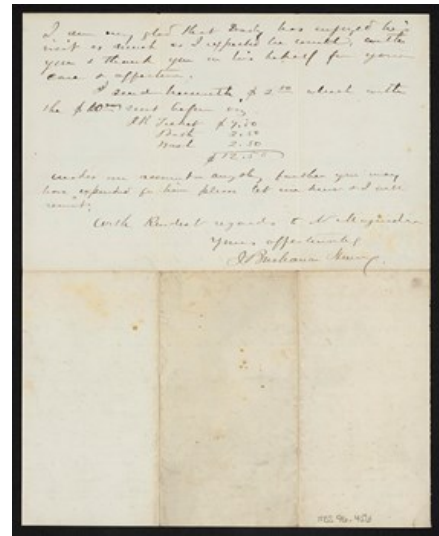 I am very glad that Brady has enjoyed his
visit as much as I expected he would, with
you & thank you in his behalf for your
care & affection.
I send herewith $ 2 50 which with
the $10 sent before or
RR Ticket $7.50
Bush 2.50
2.50
$12.50
makes our account anything further you may
have expended for him please let me know & I will
remit,
With Kindest regards to
Yours affectionately
J Buchanan Henry